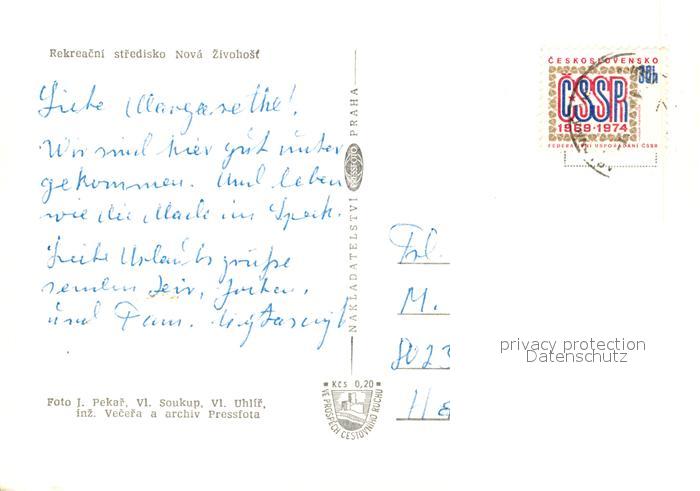 Rekreační středisko Nová Živohošť
Liebe Margarethe!
Wir sind hier gut unter
gekommen. Und leben
wie die Made im Speck.
Liebe Urlaubsgrüße
senden Dir, Jochen,
und Fam.
Foto J. Pekař, Vl. Soukup, Vl. Uhlíř,
inž. Večeřa a archiv Pressfota
NAKLADATELSTVÍ PRESSFOTO PRAHA
Kčs 0,20
VE PROSPĚCH CESTOVNÍHO RUCHU
ČESKOSLOVENSKO
30h
ČSSR
1969·1974
FEDERATIVNÍ USPOŘÁDÁNÍ ČSSR
Frl.
M.
8023
privacy protection
Datenschutz